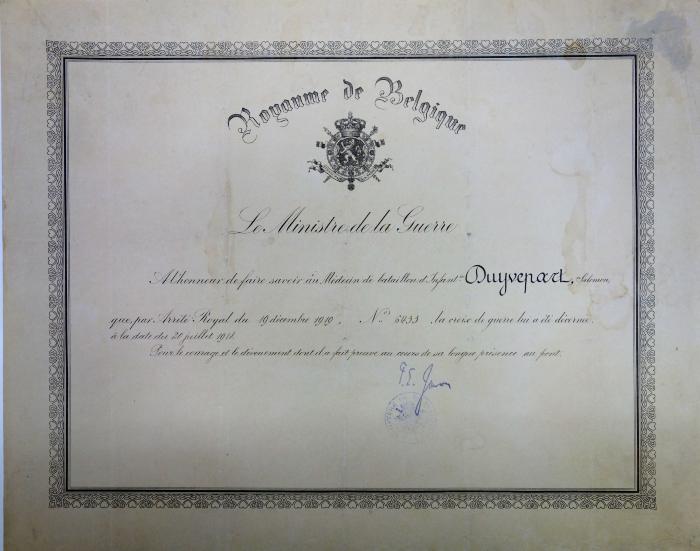 Royaume de Belgique
Le Ministre de la Guerre
A l'honneur de faire savoir au Médecin de bataillon d'Infant<sup>ie</sup> Duyvepart, Salomon,
que, par Arrêté Royal du 19 décembre 1919, N° 6433 la croix de guerre lui a été décernée
à la date du 21 juillet
Pour le courage et le dévouement dont il a fait preuve au cours de sa longue présence au front.